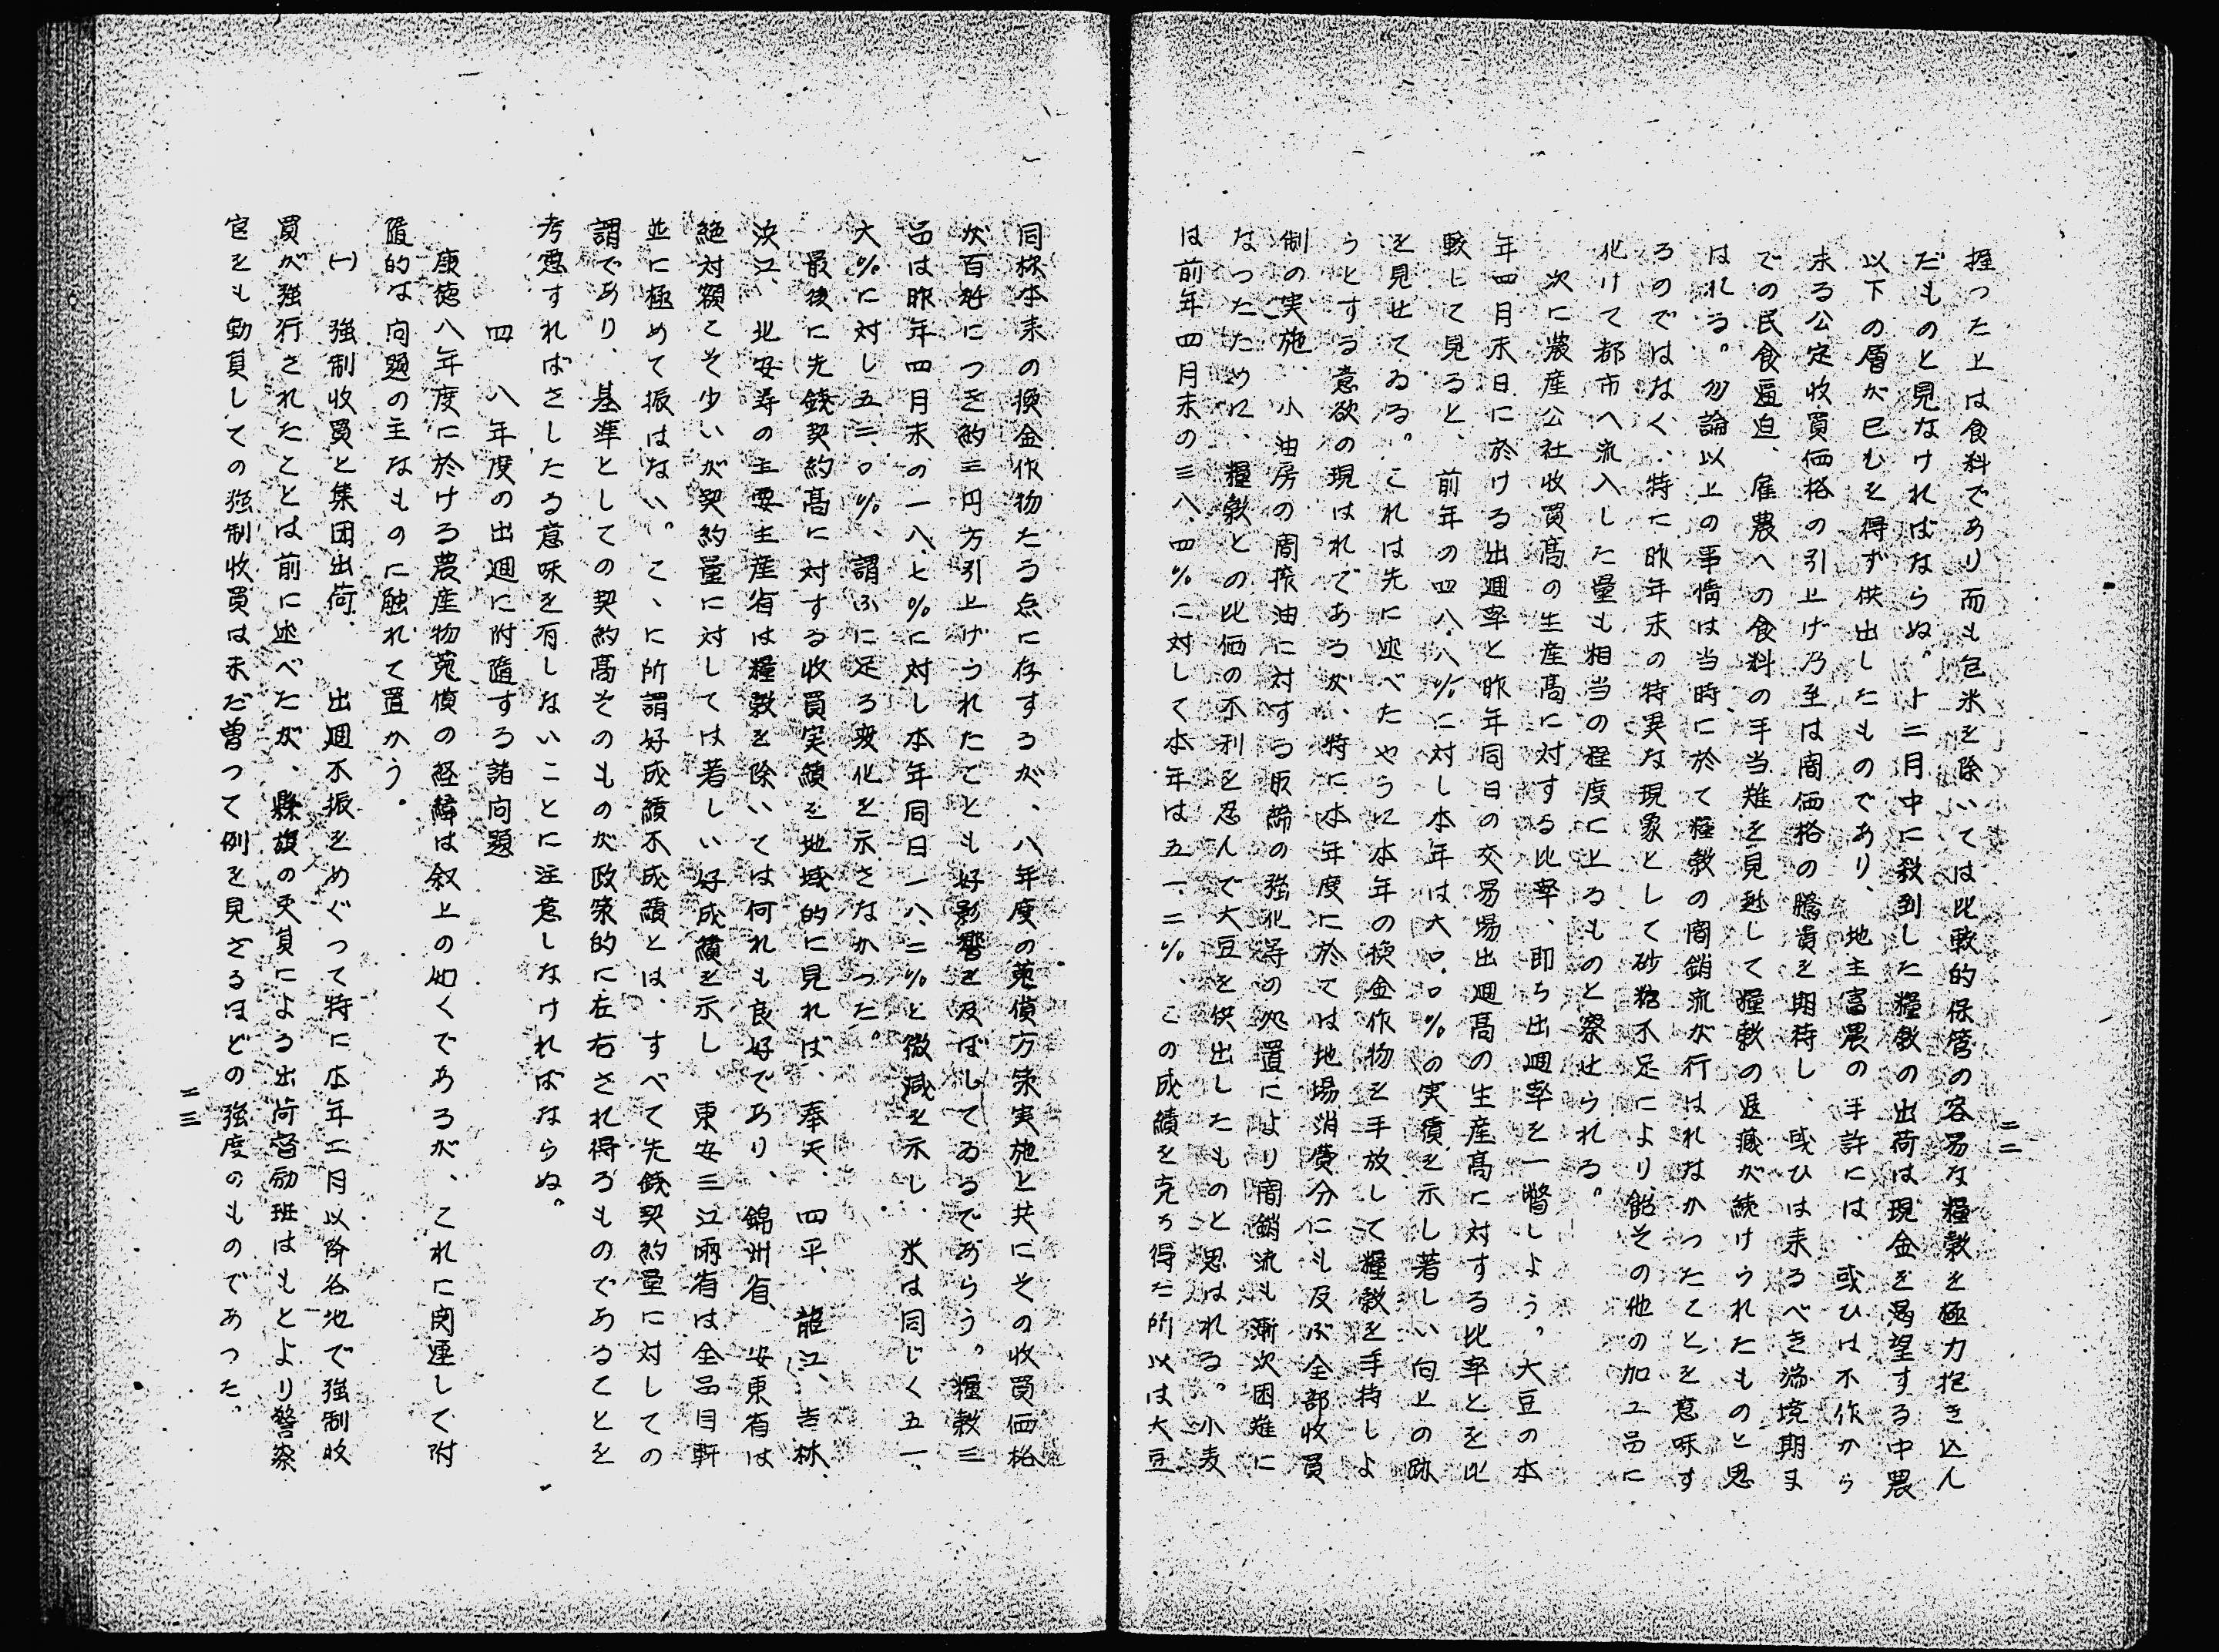 二二
握つた上は食料であり而も包米を除いては比較的保管の容易な糧穀を極力抱き込ん
だものと見なければならぬ。十二月中に殺到した糧穀の出荷は現金を渇望する中農
以下の層が已むを得ず供出したものであり、地主富農の手許には、或ひは不作から
来る公定收買価格の引上げ乃至は闇価格の騰貴を期待し、或ひは来るべき端境期ま
での民食逼迫、雇農への食料の手当難を見越して糧穀の退蔵が続けられたものと思
はれる。勿論以上の事情は当時に於て糧穀の闇銷流が行はれなかつたことを意味す
るのではなく、特に昨年末の特異な現象として砂糖不足により飴その他の加工品に
化けて都市へ流入した量も相当の程度に上るものと察せられる。
次に農産公社收買高の生産高に対する比率、即ち出廻率を一瞥しよう。大豆の本
年四月末日に於ける出廻率と昨年同日の交易場出廻高の生産高に対する比率とを比
較して見ると、前年の四八.八%に対し本年は六〇.〇%の実績を示し著しい向上の跡
を見せてゐる。これは先に述べたやうに本年の換金作物を手放して糧穀を手持しよ
うとする意欲の現はれであるが、特に本年度に於ては地場消費分にも及ぶ全部收買
制の実施、小油房の闇搾油に対する取締の強化等の処置により闇銷流も漸次困難に
なつたために、糧穀との比価の不利を忍んで大豆を供出したものと思はれる。小麦
は前年四月末の三八.四%に対して本年は五一.二%、この成績を克ち得た所以は大豆
同様本来の換金作物たる点に存するが、八年度の蒐債方策実施と共にその收買価格
が百瓩につき約三円方引上げられたことも好影響を及ぼしてゐるであらう。糧穀三
品は昨年四月末の一八.七%に対し本年同日一八.二%と微減を示し、米は同じく五一.
六%に対し五三.〇%、謂ふに足る変化を示さなかつた。
最後に先銭契約高に対する收買実績を地域的に見れば、奉天、四平、龍江、吉林、
浜江、北安等の主要主産省は糧穀を除いては何れも良好であり、錦州省、安東省は
絶対額こそ少いが契約量に対しては著しい好成績を示し、東安三江両省は全品目軒
並に極めて振はない。こゝに所謂好成績不成績とは、すべて先銭契約量に対しての
謂であり、基準としての契約高そのものが政策的に左右され得るものであることを
考慮すればさしたる意味を有しないことに注意しなければならぬ。
四　八年度の出廻に附随する諸問題
康徳八年度に於ける農産物蒐債の経緯は叙上の如くであるが、これに関連して附
随的な問題の主なものに触れて置かう。
(一)　強制收買と集団出荷.　出廻不振をめぐつて特に本年二月以降各地で強制收
買が強行されたことは前に述べたが、縣旗の吏員による出荷督励班はもとより警察
官をも動員しての強制收買は未だ曽つて例を見ざるほどの強度のものであつた。
二三